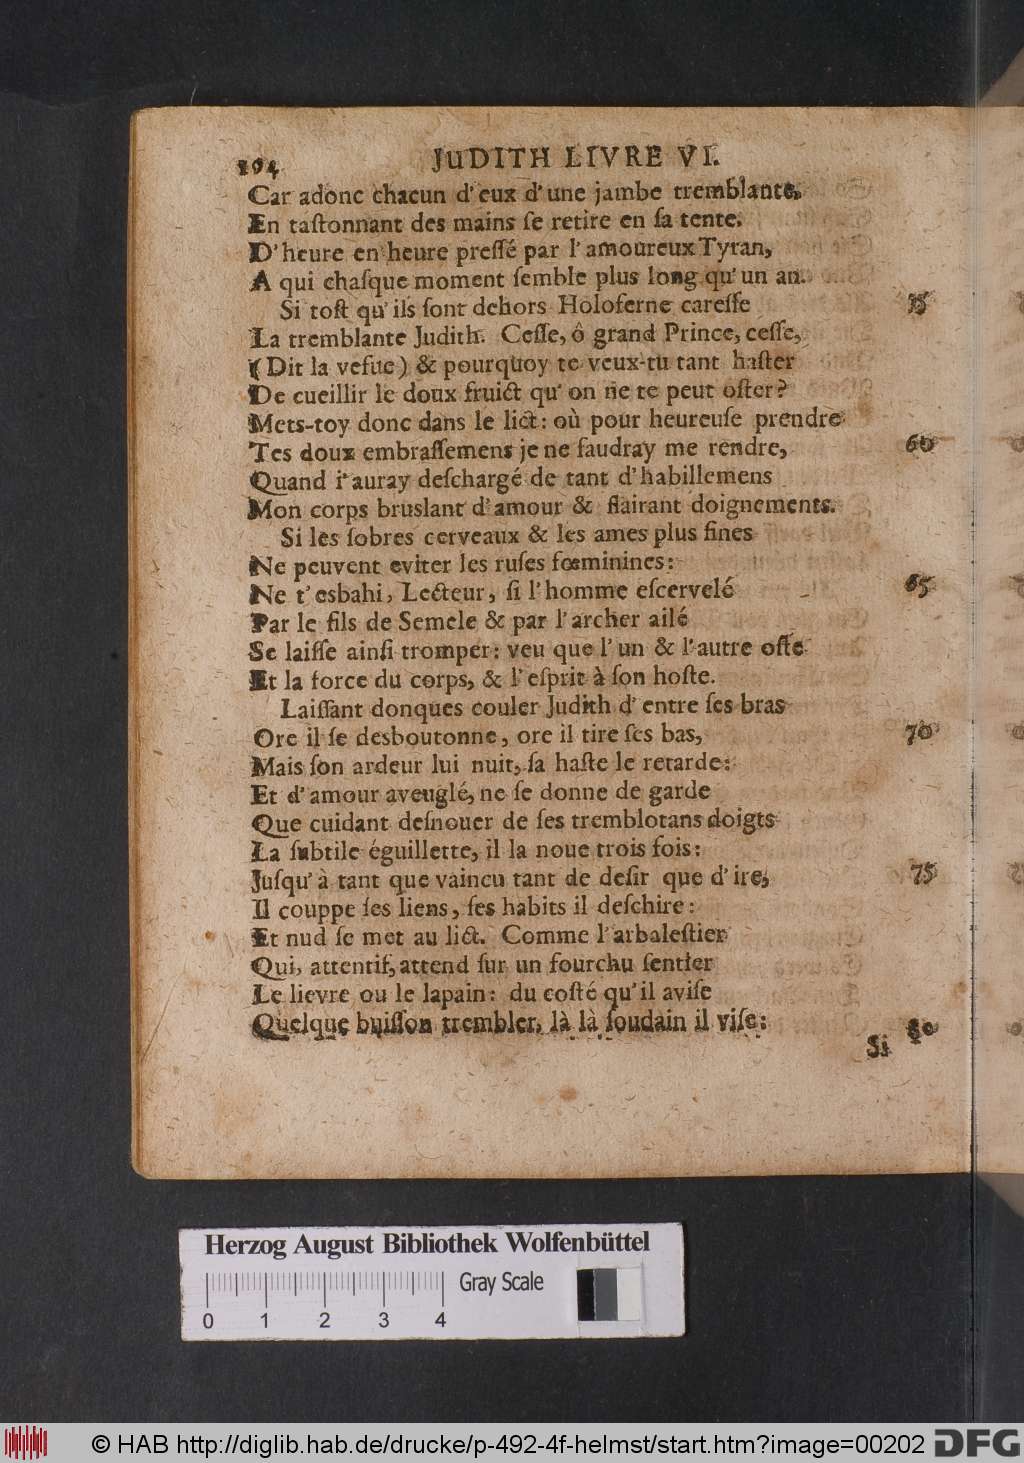 104 JUDITH LIVRE VI.
Car adonc chacun d'eux d'une jambe tremblante,
En taſtonnant des mains ſe retire en ſa tente.
D'heure en heure preſſé par l'amoureux Tyran,
A qui chaſque moment ſemble plus long qu'un an.
Si toſt qu'ils ſont dehors Holoferne careſſe 55
La tremblante Judith. Ceſſe, ô grand Prince, ceſſe,
(Dit la vefue) & pourquoy te veux-tu tant haſter
De cueillir le doux fruict qu'on ne te peut oſter?
Mets-toy donc dans le lict: où pour heureuſe prendre
Tes doux embraſſemens je ne faudray me rendre, 60
Quand i'auray deſchargé de tant d'habillemens
Mon corps bruslant d'amour & flairant doignements.
Si les ſobres cerveaux & les ames plus fines
Ne peuvent eviter les ruſes fœminines:
Ne t'esbahi, Lecteur, ſi l'homme eſcervelé 65
Par le fils de Semele & par l'archer ailé
Se laiſſe ainſi tromper: veu que l'un & l'autre oſte
Et la force du corps, & l'eſprit à ſon hoſte.
Laiſſant donques couler Judith d'entre ſes bras
Ore il ſe desboutonne, ore il tire ſes bas, 70
Mais ſon ardeur lui nuit, ſa haſte le retarde:
Et d'amour aveuglé, ne ſe donne de garde
Que cuidant deſnouer de ſes tremblotans doigts
La ſubtile éguillette, il la noue trois fois:
Juſqu'à tant que vaincu tant de deſir que d'ire, 75
Il couppe ſes liens, ſes habits il deſchire:
Et nud ſe met au lict. Comme l'arbaleſtier
Qui, attentif, attend ſur un fourchu ſentier
Le lievre ou le lapain: du coſté qu'il aviſe
Quelque buiſſon trembler, là là ſoudain il viſe: 80
Si
Herzog August Bibliothek Wolfenbüttel
Gray Scale
0 1 2 3 4
© HAB http://diglib.hab.de/drucke/p-492-4f-helmst/start.htm?image=00202 DFG